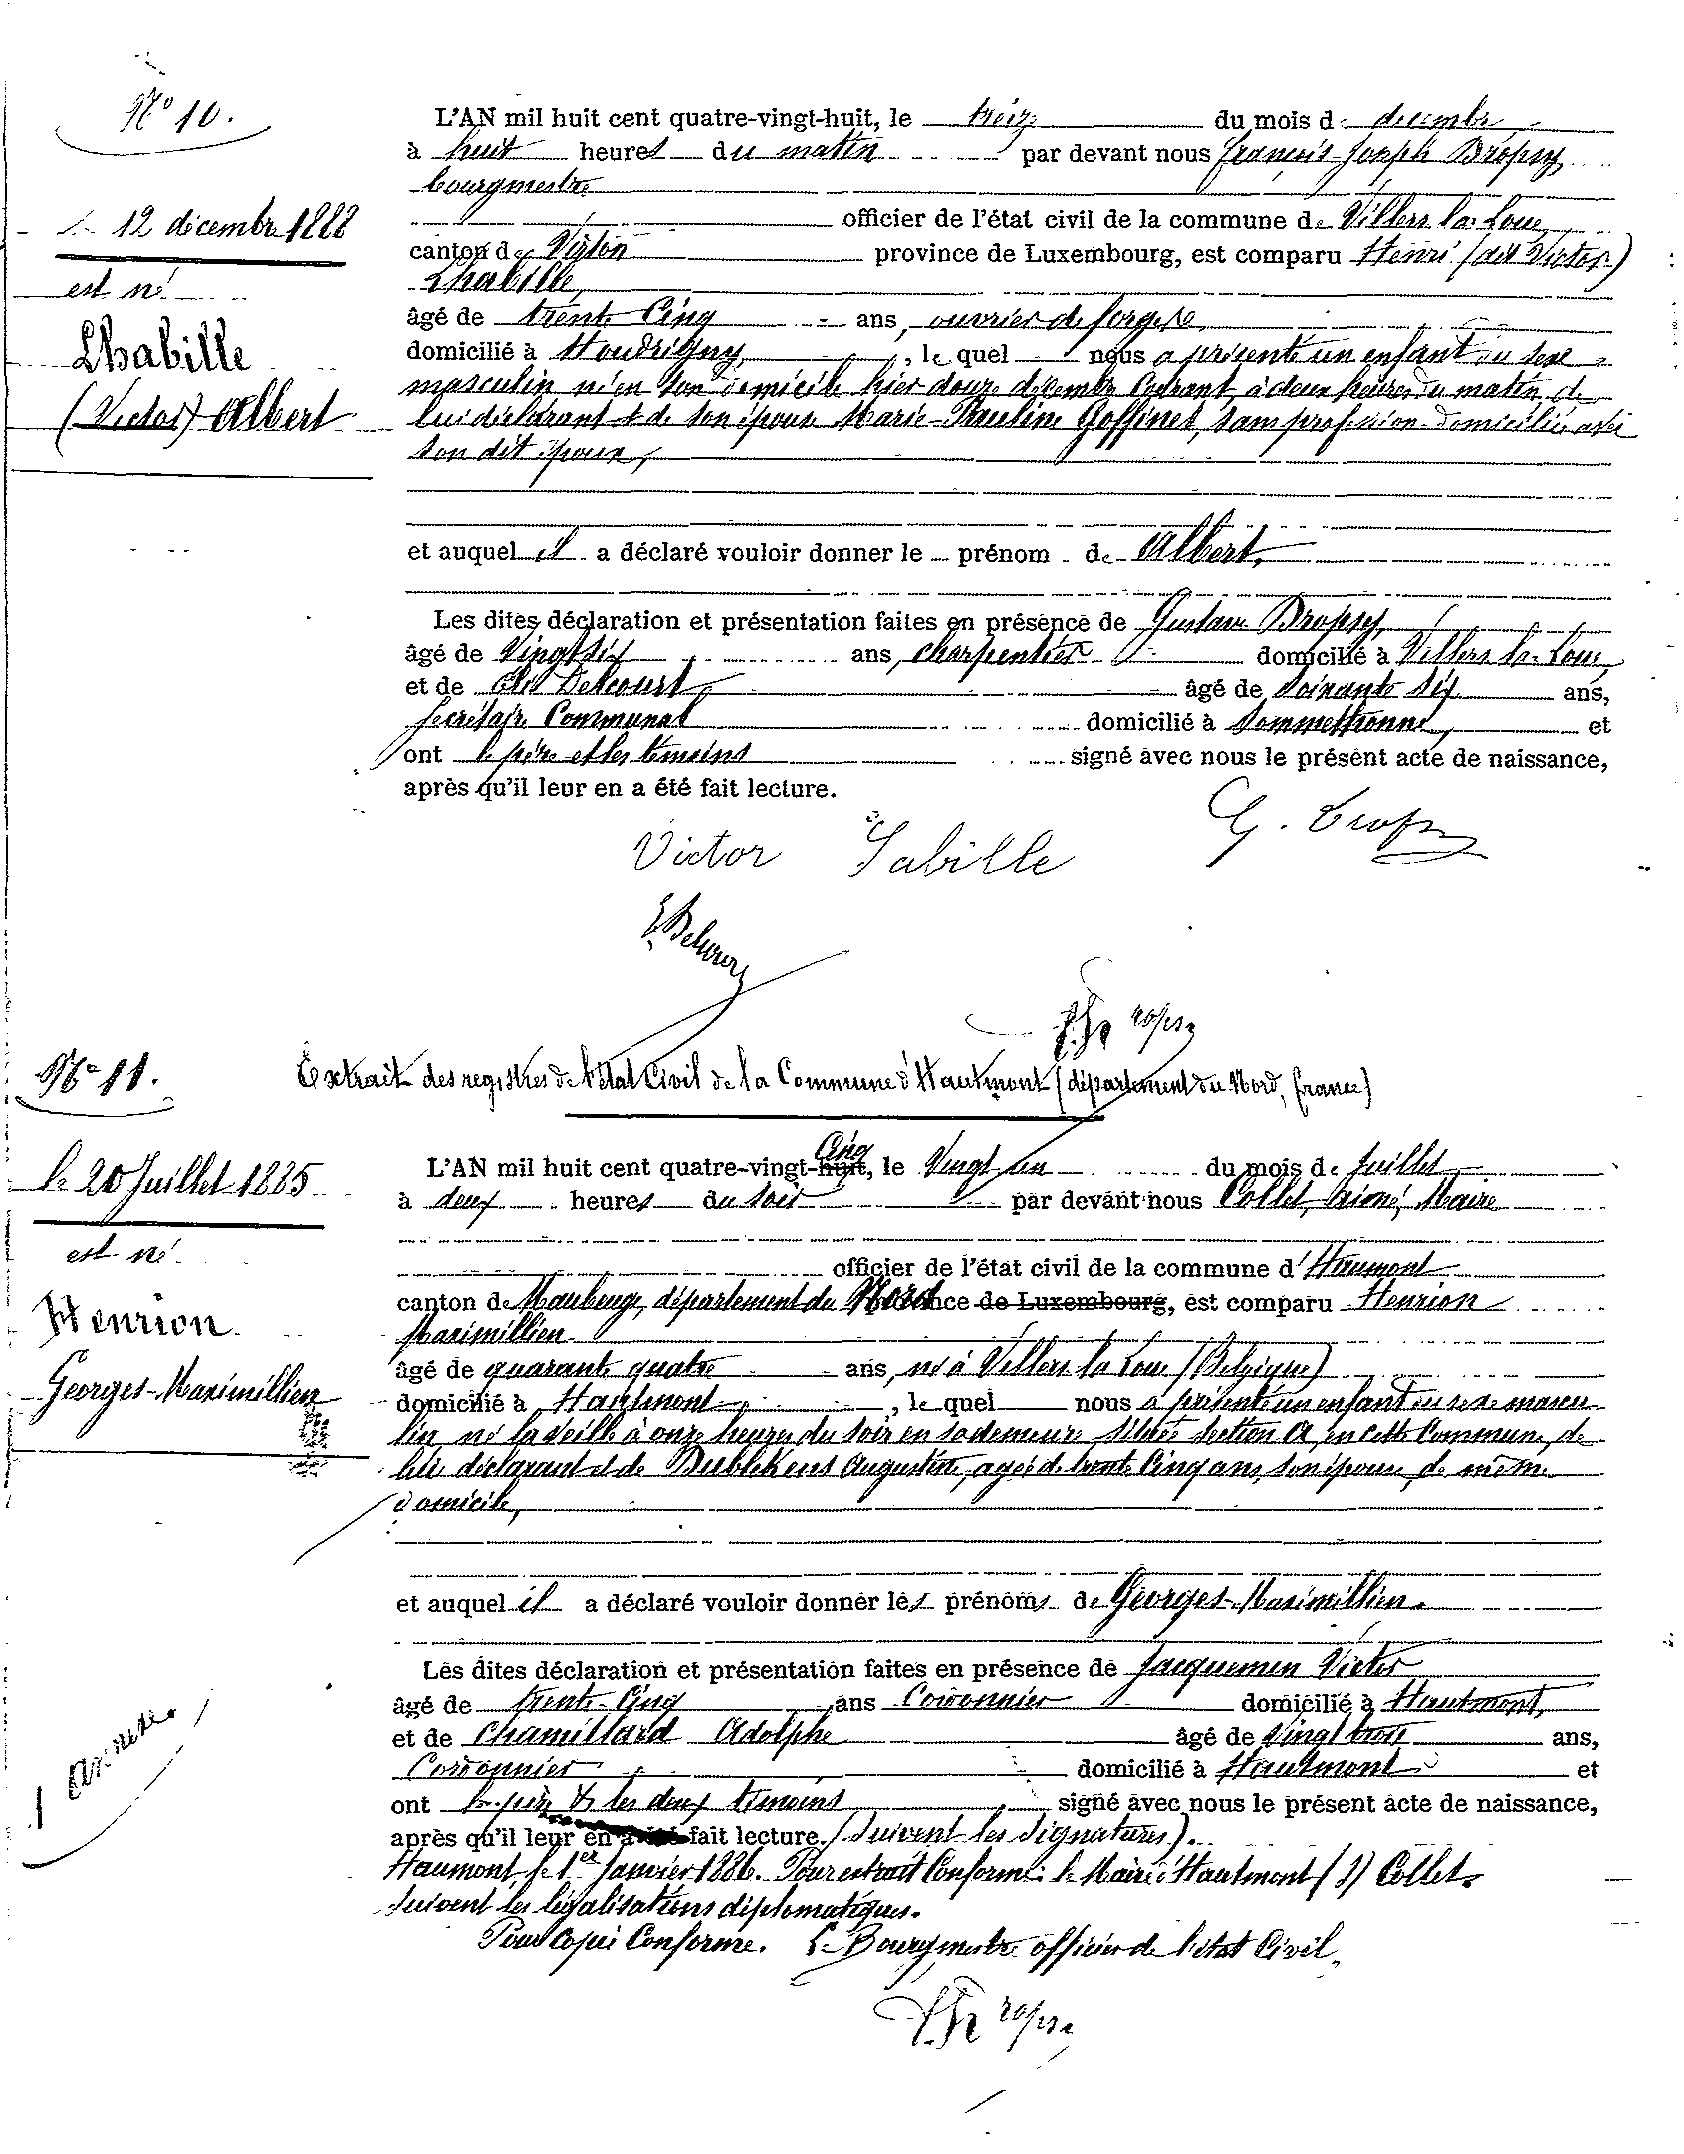 No 10.
L'AN mil huit cent quatre-vingt-huit, le treize du mois de decembre
à huit heures du matin par devant nous François-Joseph Bropsy
bourgmestre
officier de l'état civil de la commune de Villers-la-Loue,
canton de Virton province de Luxembourg, est comparu Henri (dit Victor)
Lhabille,
âgé de trente cinq ans, ouvrier de forges
domicilié à Houdrigny, le quel nous a présenté un enfant du sexe
masculin né en son domicile hier douze décembre courant, à deux heures du matin, de
lui déclarant et de son épouse Marie-Pauline Goffinet, sans profession domiciliée avec
son dit époux,
le 12 décembre 1888
est né
Lhabille
(Victor) Albert
et auquel il a déclaré vouloir donner le prénom de Albert.
Les dites déclaration et présentation faites en présence de Gustave Bropsy,
âgé de vingt six ans, charpentier domicilié à Villers-la-Loue,
et de Delcourt, âgé de soixante six ans,
secrétaire communal domicilié à Sommethonne, et
ont le père et les témoins signé avec nous le présent acte de naissance,
après qu'il leur en a été fait lecture.
Victor Labille
G. Bropsy
No 11.
Extrait des registres de l'état Civil de la Commune d'Hautmont (département du Nord, france)
L'AN mil huit cent quatre-vingt-huit, cinq le vingt un du mois de Juillet
à deux heures du soir par devant nous Collet, Maire
officier de l'état civil de la commune d'Haumont
canton de Maubeuge, département du Nord province de Luxembourg, est comparu Henrion
Maximillien
âgé de quarante quatre ans, né à Villers-la-Loue (Belgique)
domicilié à Hautmont, le quel nous a présenté un enfant du sexe mascu
lin, né la veille à onze heures du soir en sa demeure située section A, en cette commune, de
lui déclarant et de Augustine, agée de trente cinq ans, son épouse, de même
domicile,
le 20 Juillet 1885
est né
Henrion
Georges-Maximillien
et auquel il a déclaré vouloir donner les prénoms de Georges-Maximillien.
Les dites déclaration et présentation faites en présence de Jacquemin Victor
âgé de trente-cinq ans Cordonnier domicilié à Hautmont,
et de Chamillard Adolphe âgé de vingt trois ans,
Cordonnier domicilié à Hautmont et
ont le père & les deux témoins signé avec nous le présent acte de naissance,
après qu'il leur en a été fait lecture. (Suivent les Signatures).
Haumont, le 1er Janvier 1886. Pour extrait conforme: le Maire d'Hautmont (s) Collet.
Suivent les légalisations diplomatiques.
Pour copie conforme. Le Bourgmestre officier de l'état Civil,